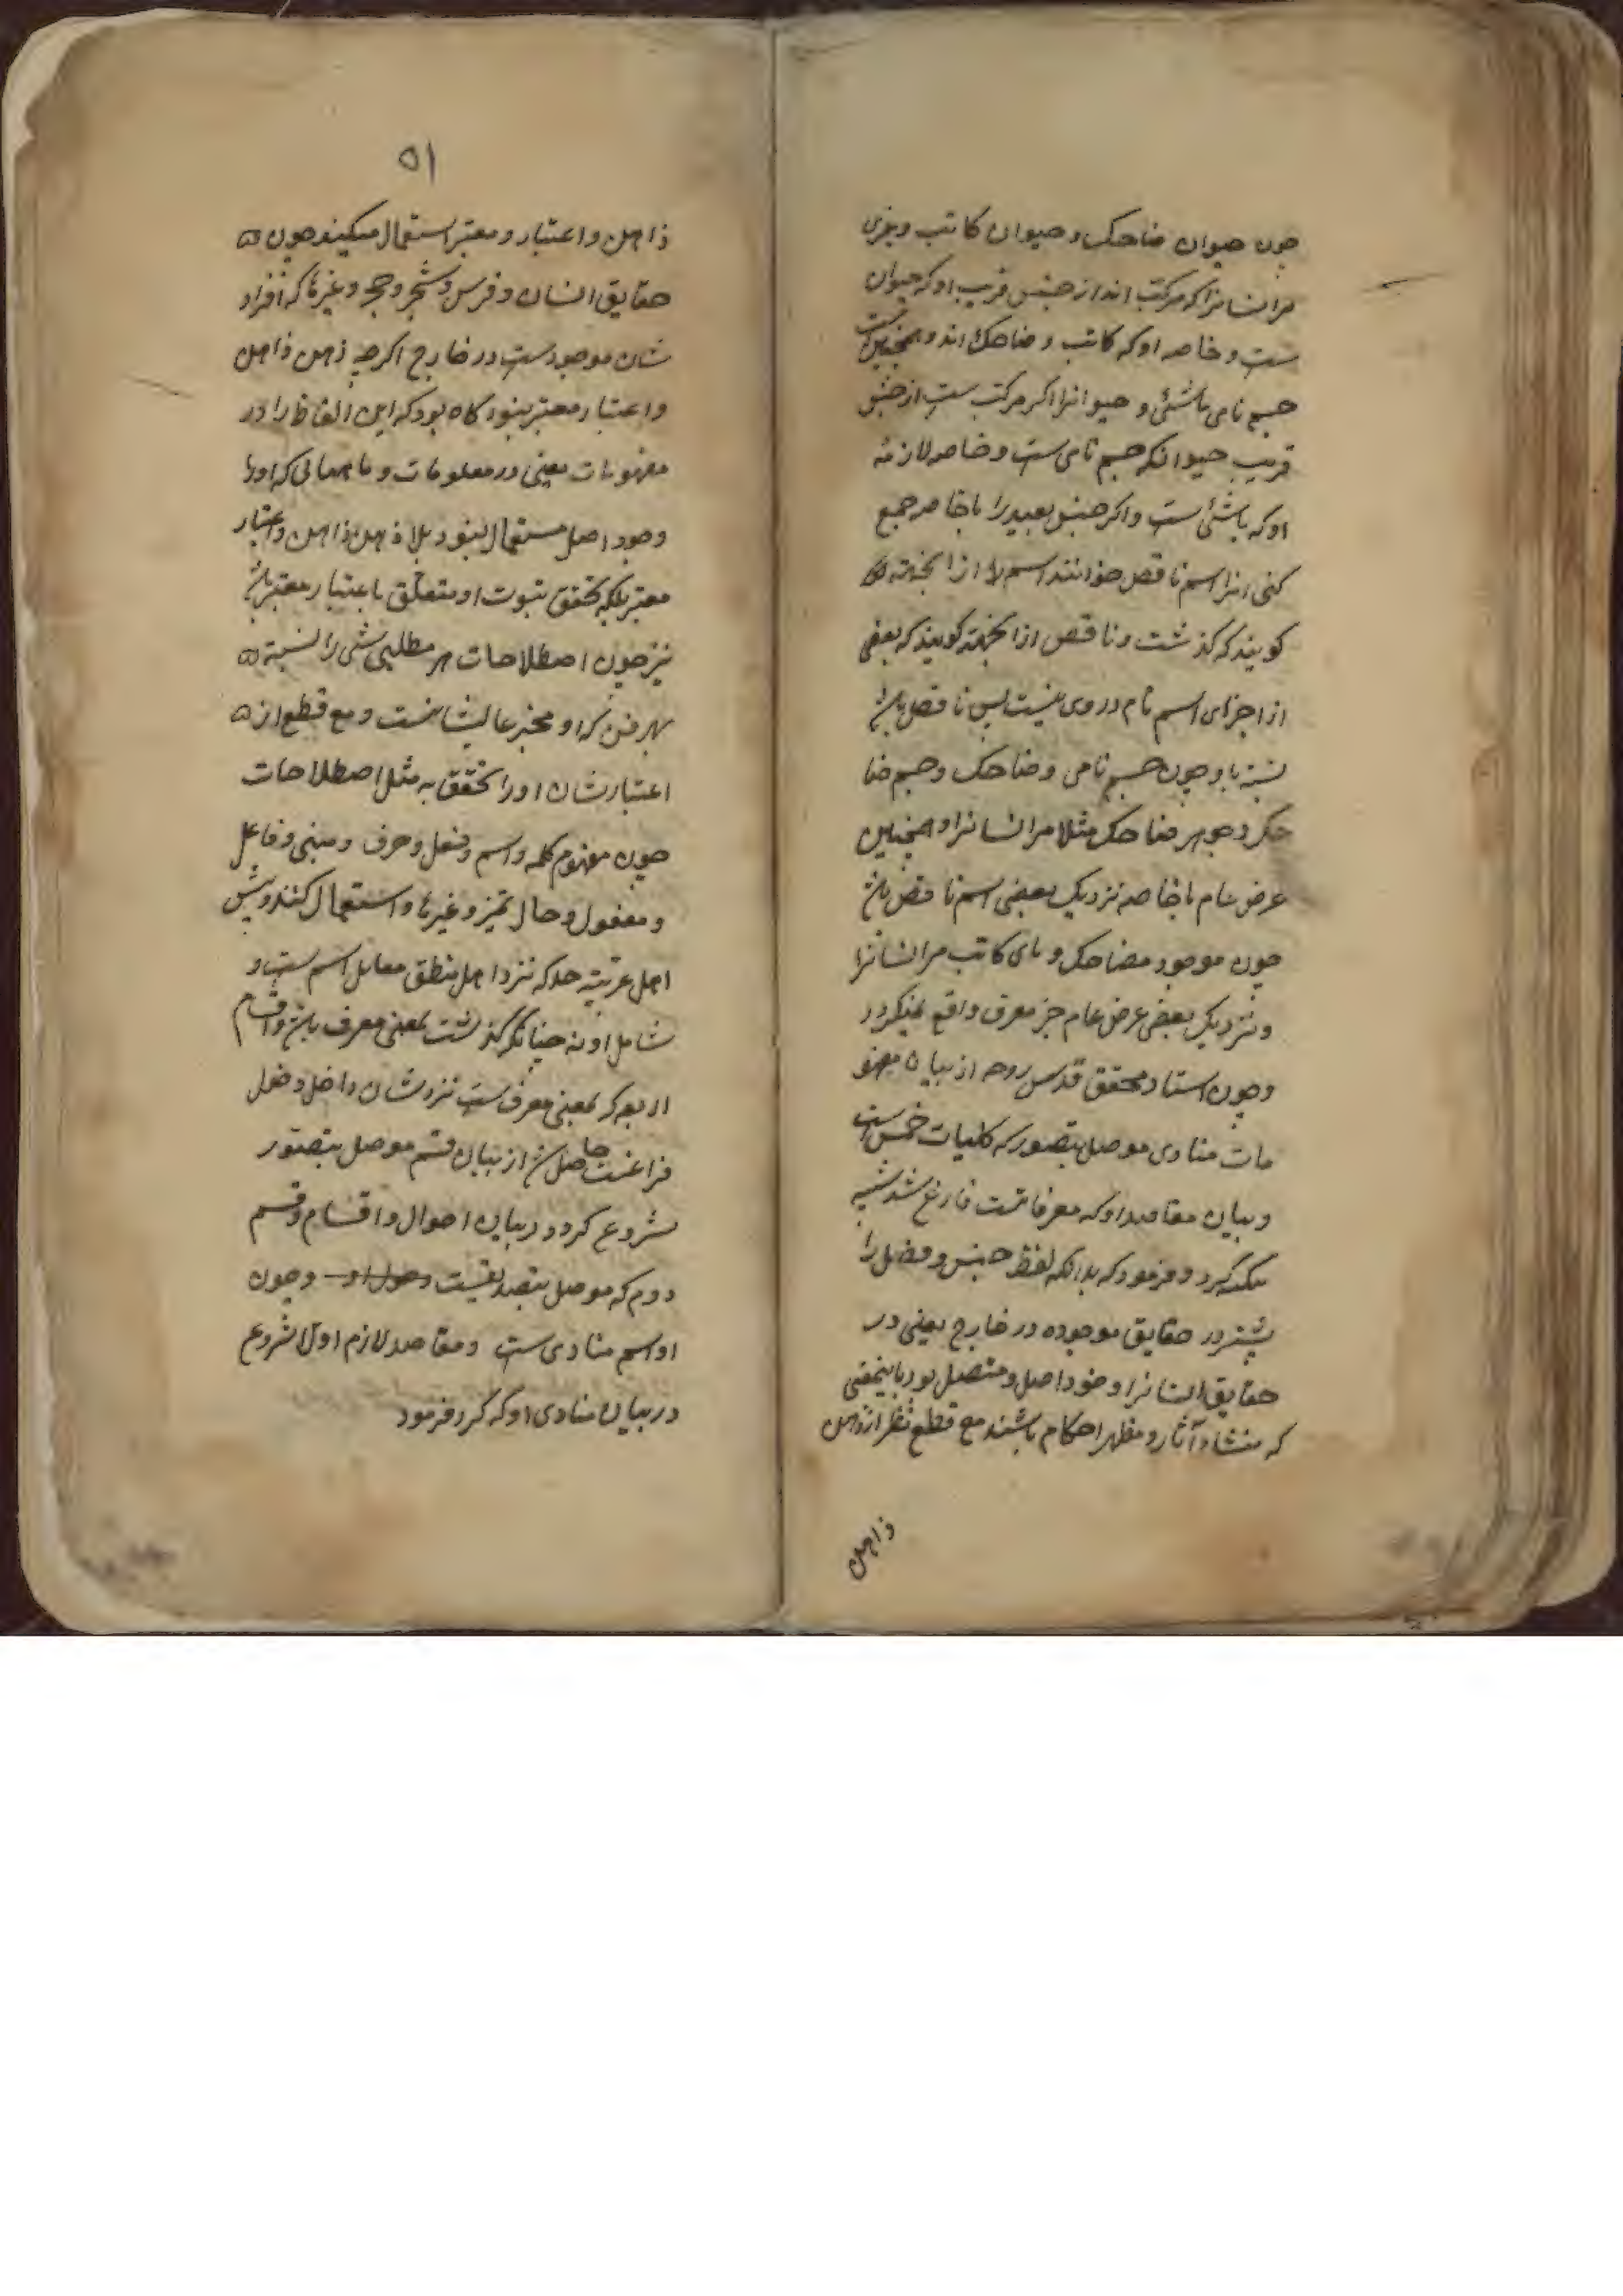 چون حیوان ضاحک و حیوان کاتب و غیری
مر انسانرا که مرکب اند از جنس قریب او که حیوان
ست و خاصه او که کاتب و ضاحک اند و همچنین ست
جسم نامی ماشئ و حیوانرا اکر مرکب ست از جنس
قریب حیوانکه جسم نامی ست و خاصه لازمهٔ
او که ماشئ است و اکر جنس بعید را با خاصه جمع
کنی انرا اسم ناقص خوانند اسم از انجهته
کویند که کذشت و ناقص از انجهته کویند که بعضی
از اجزای اسم تام در وی نیست پس ناقص باشد
نسبة باو چون جسم نامی و ضاحک و جسم ضا
حک و جوهر ضاحک مثلا مر انسانرا و همچنین
عرض عام با خاصه نزدیک بعضی اسم ناقص باشد
چون موجود ضاحک و کاتب مر انسانرا
و نزدیک بعضی عرض عام جز معرف واقع نمیکردد
و چون استاد محقق قدس روحه از بیان مفهو
مات مبادی موصل بتصور که کلیات خمس است
و بیان مقاصد او که معرفاتست فارغ شد
میکیرد و فرمود که بدانکه لفظ جنس و فصل را
پیشتر در حقایق موجوده در خارج یعنی در
حقایق انسانرا و خود اصل و متصل بود باینمعنی
که منشاء آثار و مظهر احکام باشند مع قطع نظر از ذهن
ذاهن
۵۱
ذاهن و اعتبار و معتبر استعمال میکنند چون
حقایق انسان و فرس و شجر و حجر و غیرها که افراد
شان موجودست در خارج اکرچه ذهن ذاهن
و اعتبار معتبر نبود کاه بود که این الفاظ را در
مفهومات یعنی در معلومات و ماهیاتی که اورا
وجود اصل مستعمال نبود بلا ذهن ذاهن و اعتبار
معتبر بلکه تحقق ثبوت او متعلق باعتبار معتبر باشد
نیز چون اصطلاحات هر مطلبی شی را نسبة
بهر فن که او مخبر عالیشانست و مع قطع از
اعتبارشان اورا تحقق به مثل اصطلاحات
چون مفهوم کلمه و اسم و فعل و حرف و مبنی و فاعل
و مفعول و حال تمیز و غیرها و استعمال کنند و پیش
اهل عربیة حد که نزد اهل منطق مقابل اسم ست و
شامل او نه چنانکه کذشت بمعنی معرف باشد و اقسام
اربعه که بمعنی معرف ست نزدشان داخل و خول
فراغت حاصل شد از بیان قسم موصل بتصور
شروع کرد در بیان احوال و اقسام و قسم
دوم که موصل بتصدیقست وصول او و چون
او اسم مبادی ست و مقاصد لازم اولا شروع
در بیان مبادی او که کرد فرمود